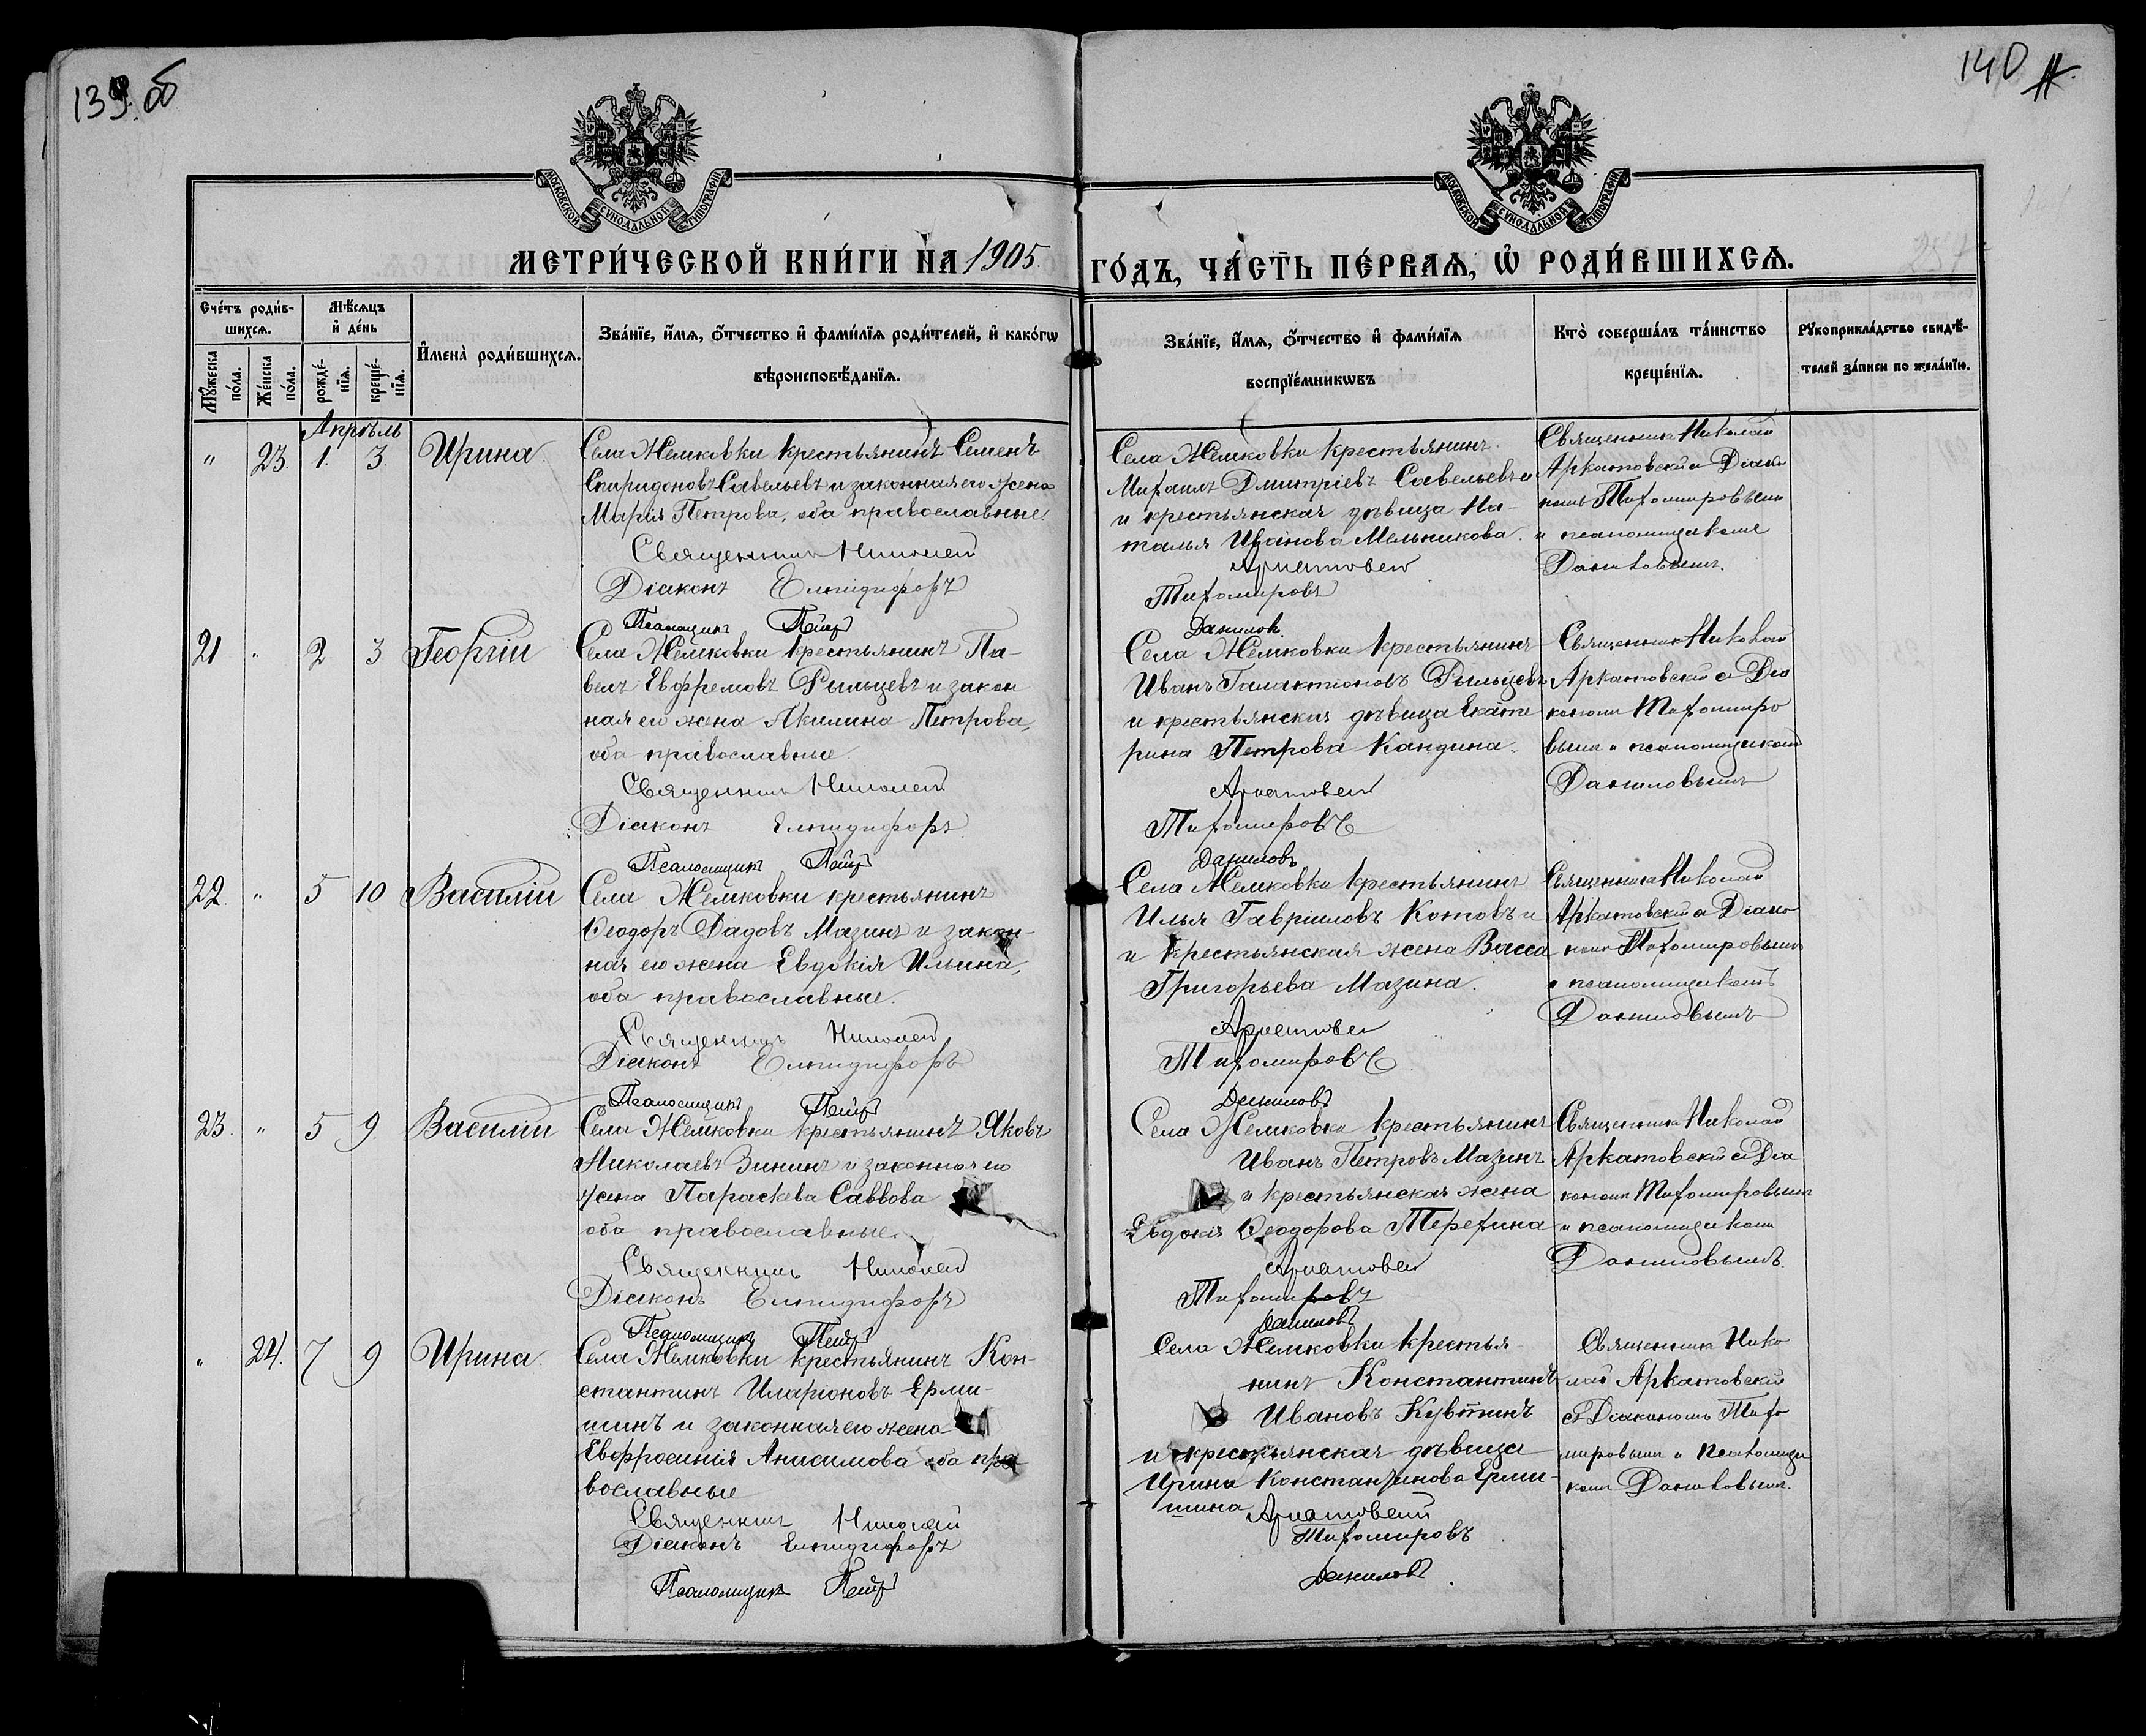 139 об
140
МОСКОВСКОЙ СѴНОДАЛЬНОЙ ТИПОГРАФІИ
МОСКОВСКОЙ СѴНОДАЛЬНОЙ ТИПОГРАФІИ
МЕТРИ́ЧЕСКОЙ КНИ́ГИ НА 1905 ГО́ДЪ, ЧА́СТЬ ПЕ́РВАѦ, Ѡ҆ РОДИ́ВШИХСѦ.
Сче́тъ роди́в-
шихсѧ.
Мꙋ́жеска по́ла.
Же́нска по́ла.
Мѣ́сѧцъ
и҆ де́нь
рожде́-
нїѧ.
креще́-
нїѧ.
И҆мена̀ роди́вшихсѧ.
Зва́нїе, и҆́мѧ, ѻ҆́тчество и҆ фами́лїѧ роди́телей, и҆ како́гѡ
вѣроисповѣ́данїѧ.
Зва́нїе, и҆́мѧ, ѻ҆́тчество и҆ фами́лїѧ
воспрїе́мникѡвъ
Кто̀ соверша́лъ та́инство
креще́нїѧ.
Рꙋкоприкла́дство свидѣ́-
телей за́писи по жела́нїю.
Апрѣль
" 23. 1. 3. Ирина
Села Жемковки крестьянинъ Семенъ
Спиридоновъ Савельевъ и законная его жена
Марія Петрова, оба православные.
Священникъ Николай
Діаконъ Елпидифоръ
Псаломщикъ Петръ
Села Жемковки крестьянинъ
Михаилъ Дмитріевъ Савельевъ и
и крестьянская дѣвица На-
талья Иванова Мельникова.
Аркатовскій
Тихомировъ
Данилов.
Священникъ Николай
Аркатовскій съ Діако
номъ Тихомировымъ
и псаломщикомъ
Даниловымъ.
21 " 2 3 Георгій
Села Жемковки крестьянинъ Па-
велъ Евфремовъ Рыльцевъ и закон
ная его жена Акилина Петрова,
оба православные.
Священникъ Николай
Діаконъ Елпидифоръ
Псаломщикъ Петръ
Села Жемковки крестьянинъ
Иванъ Галактіоновъ Рыльцевъ
и крестьянская дѣвица Екате
рина Петрова Кандина.
Аркатовскій
Тихомировъ
Даниловъ
Священникъ Николай
Аркатовскій съ Діа
кономъ Тихомиро
вымъ и псаломщикомъ
Даниловымъ
22. " 5 10 Василій
Села Жемковки крестьянинъ
Ѳеодоръ Дадовъ Мазинъ и закон-
ная его жена Евдокія Ильина,
оба православные.
Священникъ Николай
Діаконъ Елпидифоръ
Псаломщикъ Петръ
Села Жемковки крестьянинъ
Илья Гавріиловъ Котовъ и
и крестьянская жена Васса
Григорьева Мазина.
Аркатовскій
Тихомировъ
Даниловъ
Священникъ Николай
Аркатовскій съ Діако
номъ Тихомировымъ
и псаломщикомъ
Даниловымъ
23. " 5 9 Василій
Села Жемковки крестьянинъ Яковъ
Николаевъ Зининъ и законная его
жена Параскева Саввова
оба православные.
Священникъ Николай
Діаконъ Елпидифоръ
Псаломщикъ Петръ
Села Жемковки крестьянинъ
Иванъ Петровъ Мазинъ
и крестьянская жена
Евдокія Ѳеодорова Терехина
Аркатовскій
Тихомировъ
Даниловъ
Священникъ Николай
Аркатовскій съ Діа
кономъ Тихомировымъ
и псаломщикомъ
Даниловымъ.
" 24. 7 9 Ирина.
Села Жемковки крестьянинъ Кон-
стантинъ Иларіоновъ Ерми-
шинъ и законная его жена
Евфросинія Анисимова оба пра
вославные
Священникъ Николай
Діаконъ Елпидифоръ
Псаломщикъ Петръ
Села Жемковки крестья-
нинъ Константинъ
Ивановъ Кувтинъ
и крестьянская дѣвица
Ирина Константинова Ерми-
шина
Аркатовскій
Тихомировъ
Даниловъ
Священникъ Нико
лай Аркатовскій
съ Діакономъ Тихо
мировымъ и Псаломщи
комъ Даниловымъ.